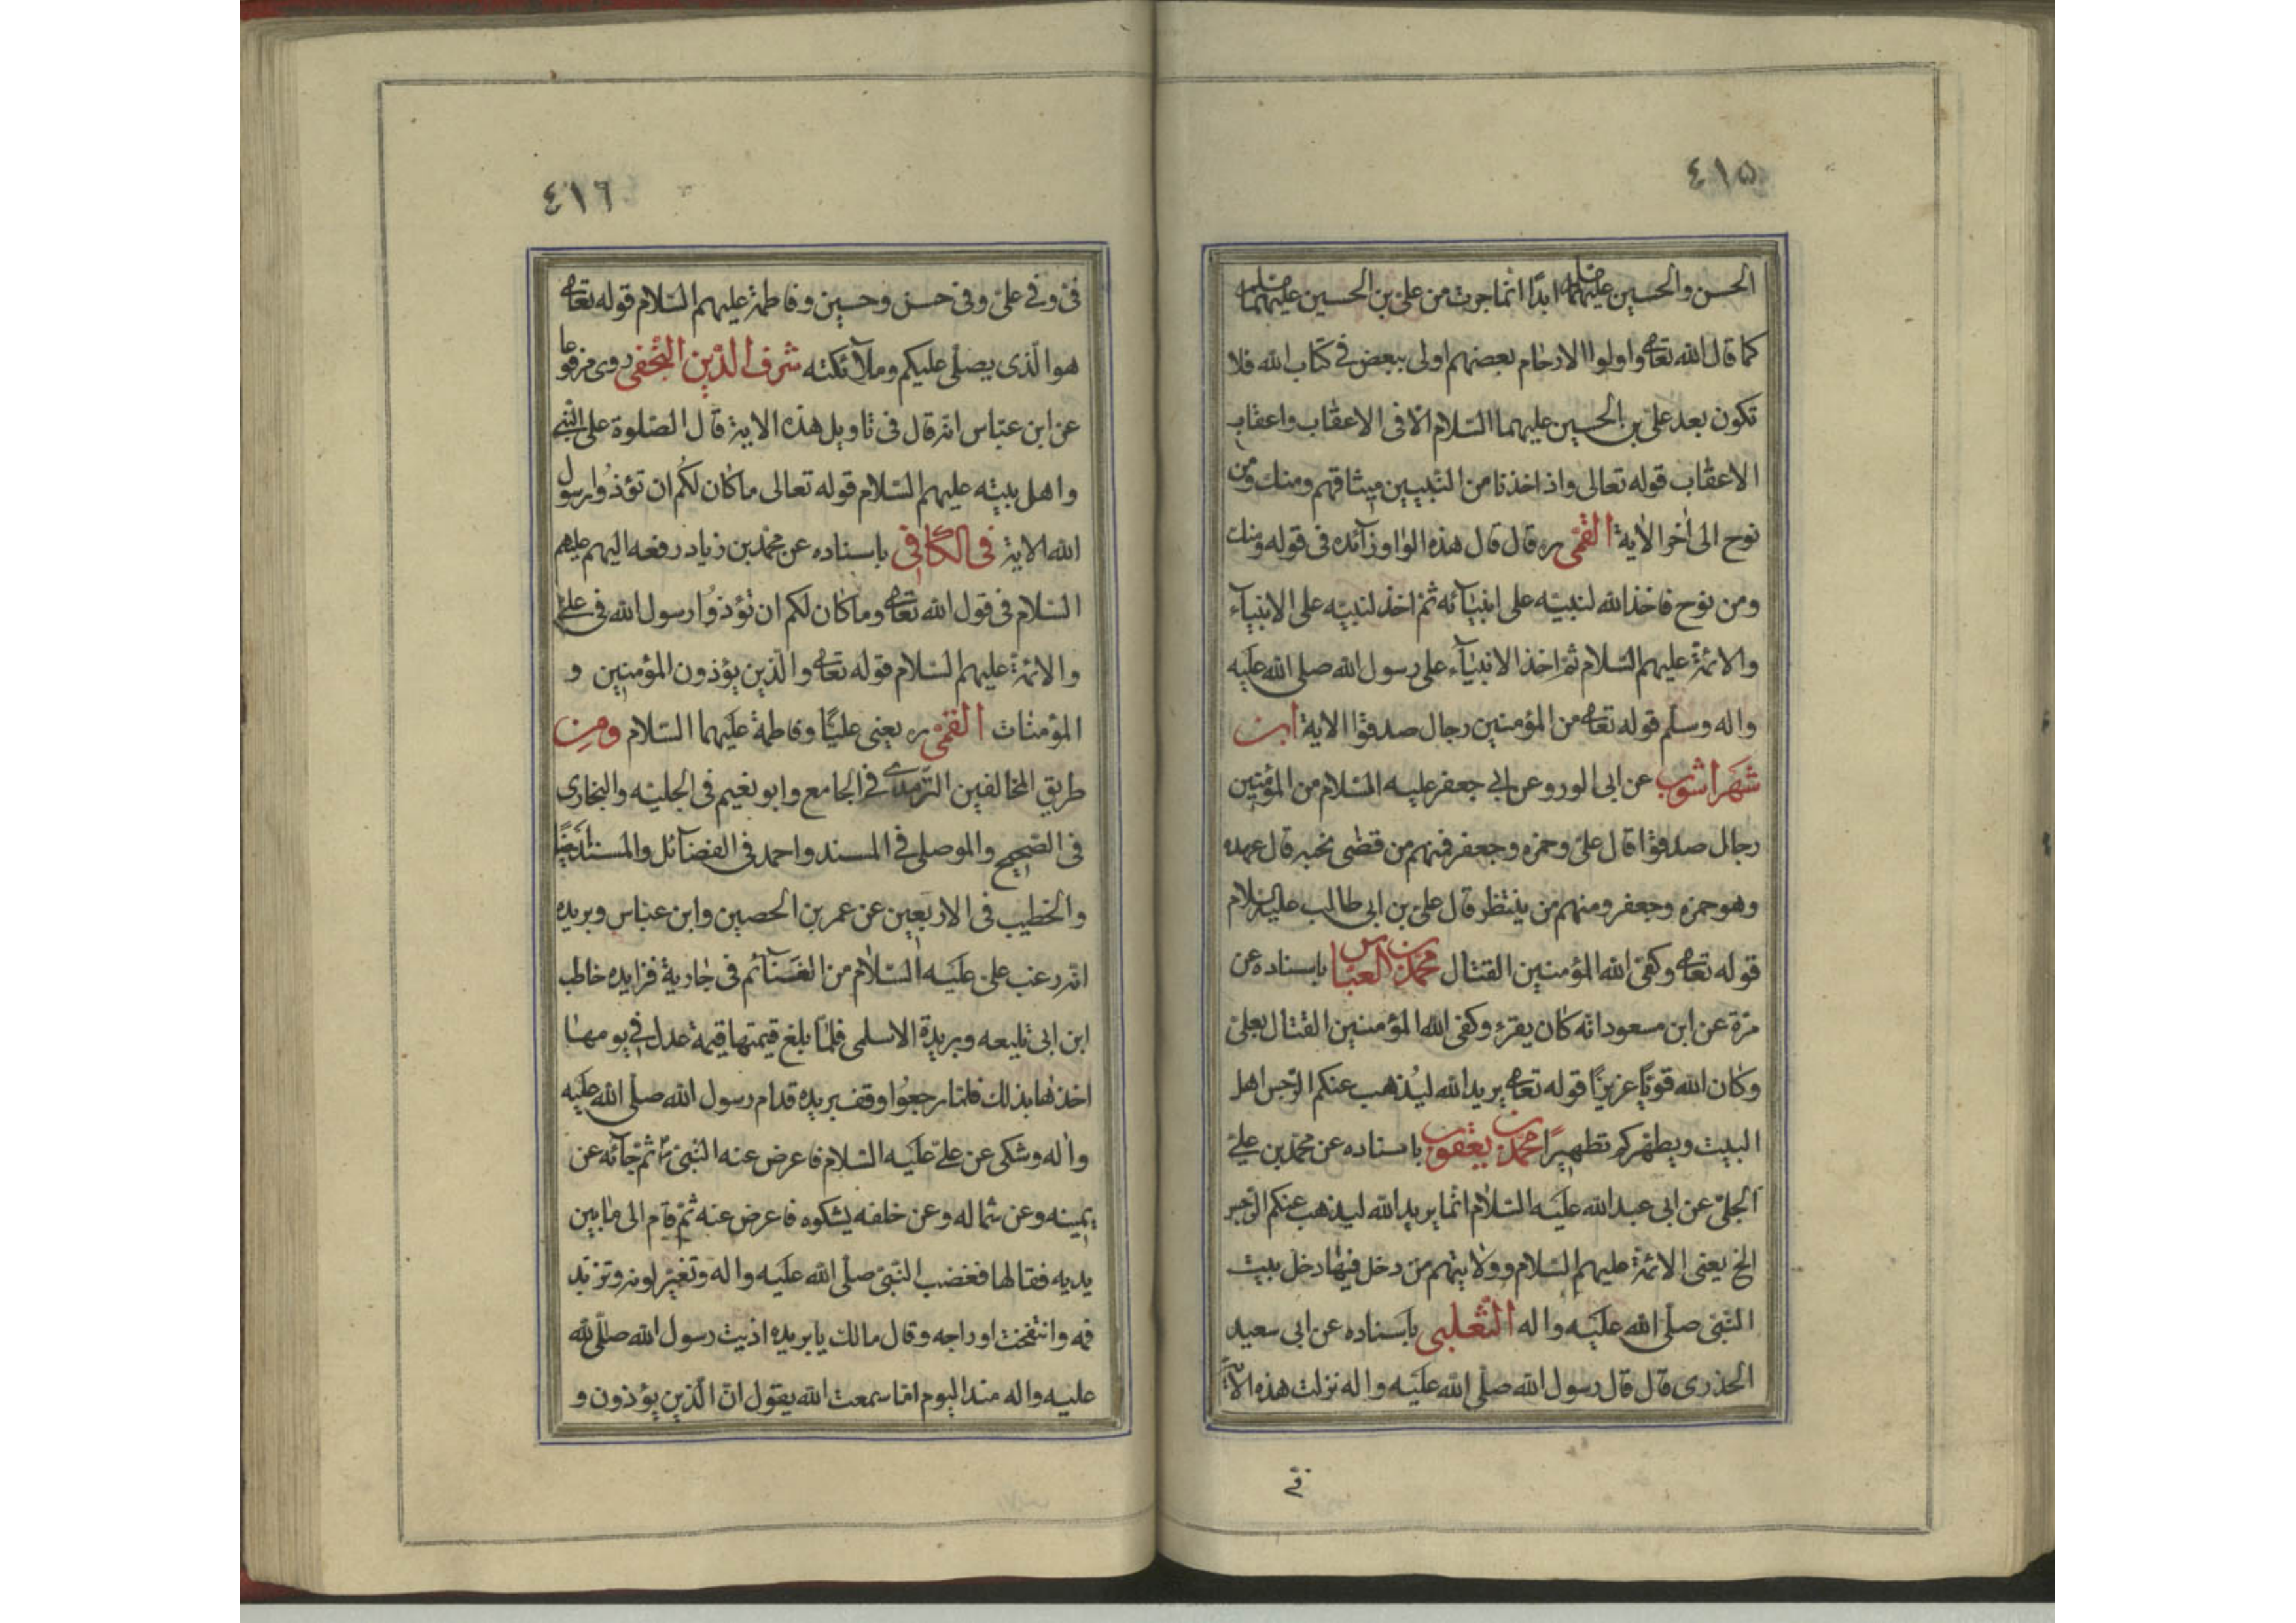 ٤١٥
الحسن والحسين عليهما ابدًا انّما جرت من علىّ بن الحسين عليهما
كما قال الله تعالى واولوا الارحام بعضهم اولى ببعض فى كتاب الله فلا
تكون بعد علىّ بن الحسين عليهما السّلام الّا فى الاعقاب واعقاب
الاعقاب قوله تعالى واذ اخذنا من النّبيين ميثاقهم ومنك ومن
نوح الى اٰخر الاية القمّى ره قال قال هذه الواو زآئده فى قوله ومنك
ومن نوح فاخذ الله لنبيّه على انبيآئه ثمّ اخذ لنبيّه على الانبيآء
والائمّة عليهم السّلام ثمّ اخذ الانبيآء على رسول الله صلى الله عليه
واله وسلّم قوله تعالى من المؤمنين رجال صدقوا الاية ابن
شهراشوب عن ابى الورد عن ابى جعفر عليه السّلام من المؤمنين
رجال صدقوا قال علىّ وحمزه وجعفر فمنهم من قضى نحبه قال عهده
وهو حمزه وجعفر ومنهم من ينتظر قال علىّ بن ابى طالب عليه السّلام
قوله تعالى وكفى الله المؤمنين القتال محمّد بن العبّاس باسناده عن
مرّة عن ابن مسعود انّه كان يقرء وكفى الله المؤمنين القتال بعلىّ
وكان الله قويًّا عزيزًا قوله تعالى يريد الله ليُذهب عنكم الرّجس اهل
البيت ويطهّركم تطهيرًا محمّد بن يعقوب باسناده عن محمّد بن علىّ
الحلبى عن ابى عبد الله عليه السّلام انّما يريد الله ليذهب عنكم الرّجس
الخ يعنى الائمّة عليهم السّلام وولايتهم من دخل فيها دخل بيت
النّبىّ صلّى الله عليه واله الثّعلبى باسناده عن ابى سعيد
الخدرى قال قال رسول الله صلّى الله عليه واله نزلت هذه الاية
فىّ
٤١٦
فىّ وفى علىّ وفى حسن وحسين وفاطمة عليهم السّلام قوله تعالى
هو الّذى يصلّى عليكم وملآئكته شرف الدّين النّجفى روى مرفوعا
عن ابن عبّاس انّه قال فى تاويل هذه الاية قال الصّلوة على النّبىّ
واهل بيته عليهم السّلام قوله تعالى ما كان لكم ان تؤذوا رسول
الله الاية فى الكافى باسناده عن محمّد بن زياد رفعه اليهم عليهم
السّلام فى قول الله تعالى وما كان لكم ان تؤذوا رسول الله فى علىّ
والائمّة عليهم السّلام قوله تعالى والّذين يؤذون المؤمنين و
المؤمنات القمّى ره يعنى عليًّا وفاطمة عليهما السّلام ومن
طريق المخالفين التّرمذى فى الجامع وابو نعيم فى الحلية والبخارى
فى الصّحيح والموصلى فى المسند واحمد فى الفضآئل والمسند ايضًا
والخطيب فى الاربعين عن عمر بن الحصين وابن عبّاس وبريده
انّه رغب علىّ عليه السّلام من الغنآئم فى جارية فزايده خاطب
ابن ابى تليعه وبريدة الاسلمى فلمّا بلغ قيمتها قيمة عدل فى يومها
اخذها بذلك فلمّا رجعوا وقف بريده قدام رسول الله صلّى الله عليه
واله وشكى عن علىّ عليه السّلام فاعرض عنه النّبىّ ص ثمّ جآئه عن
يمينه وعن شماله وعن خلفه يشكوه فاعرض عنه ثمّ قام الى ما بين
يديه فقالها فغضب النّبىّ صلّى الله عليه واله وتغيّر لونه وتزبّد
فمه وانتفخت اوداجه وقال مالك يا بريده اذيت رسول الله صلّى الله
عليه واله منذ اليوم اما سمعت الله يقول انّ الّذين يؤذون و